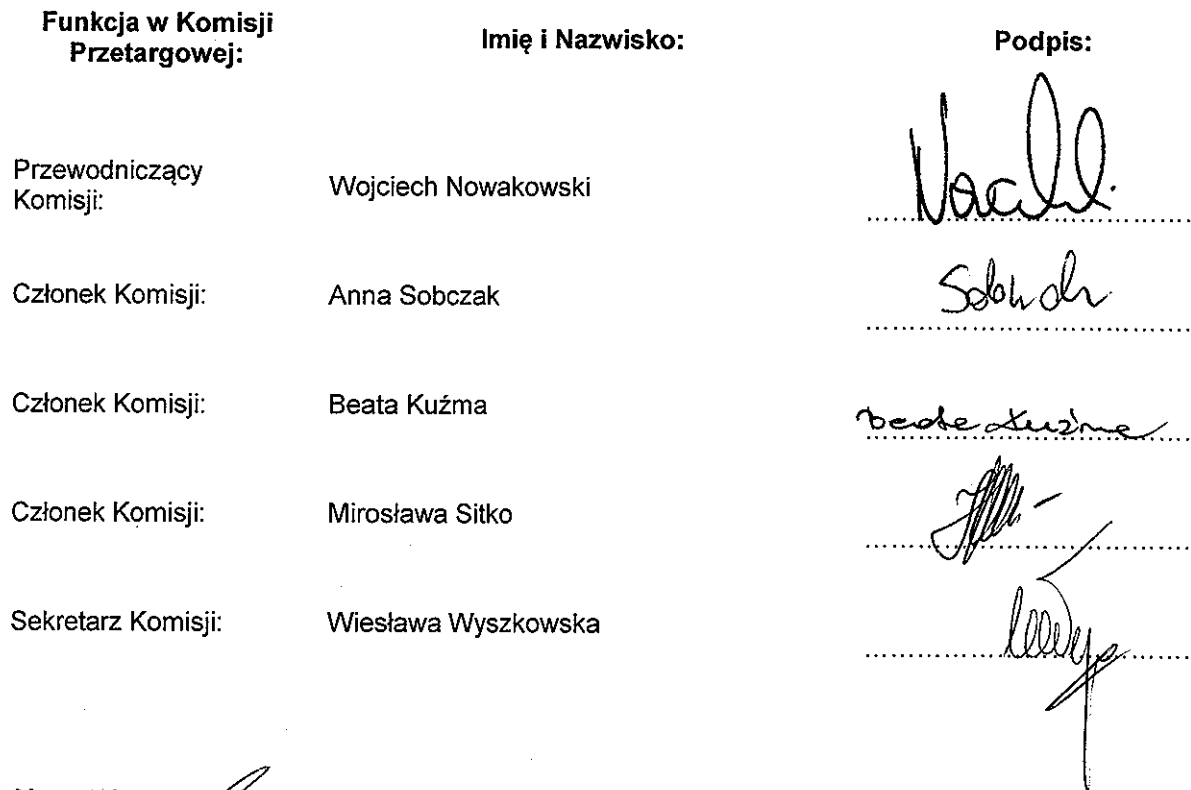 Funkcja w Komisji
Przetargowej:
Imię i Nazwisko:
Podpis:
Przewodniczący
Komisji:
Wojciech Nowakowski
Członek Komisji:
Anna Sobczak
Członek Komisji:
Beata Kuźma
Beata Kuźma
Członek Komisji:
Mirosława Sitko
Sekretarz Komisji:
Wiesława Wyszkowska